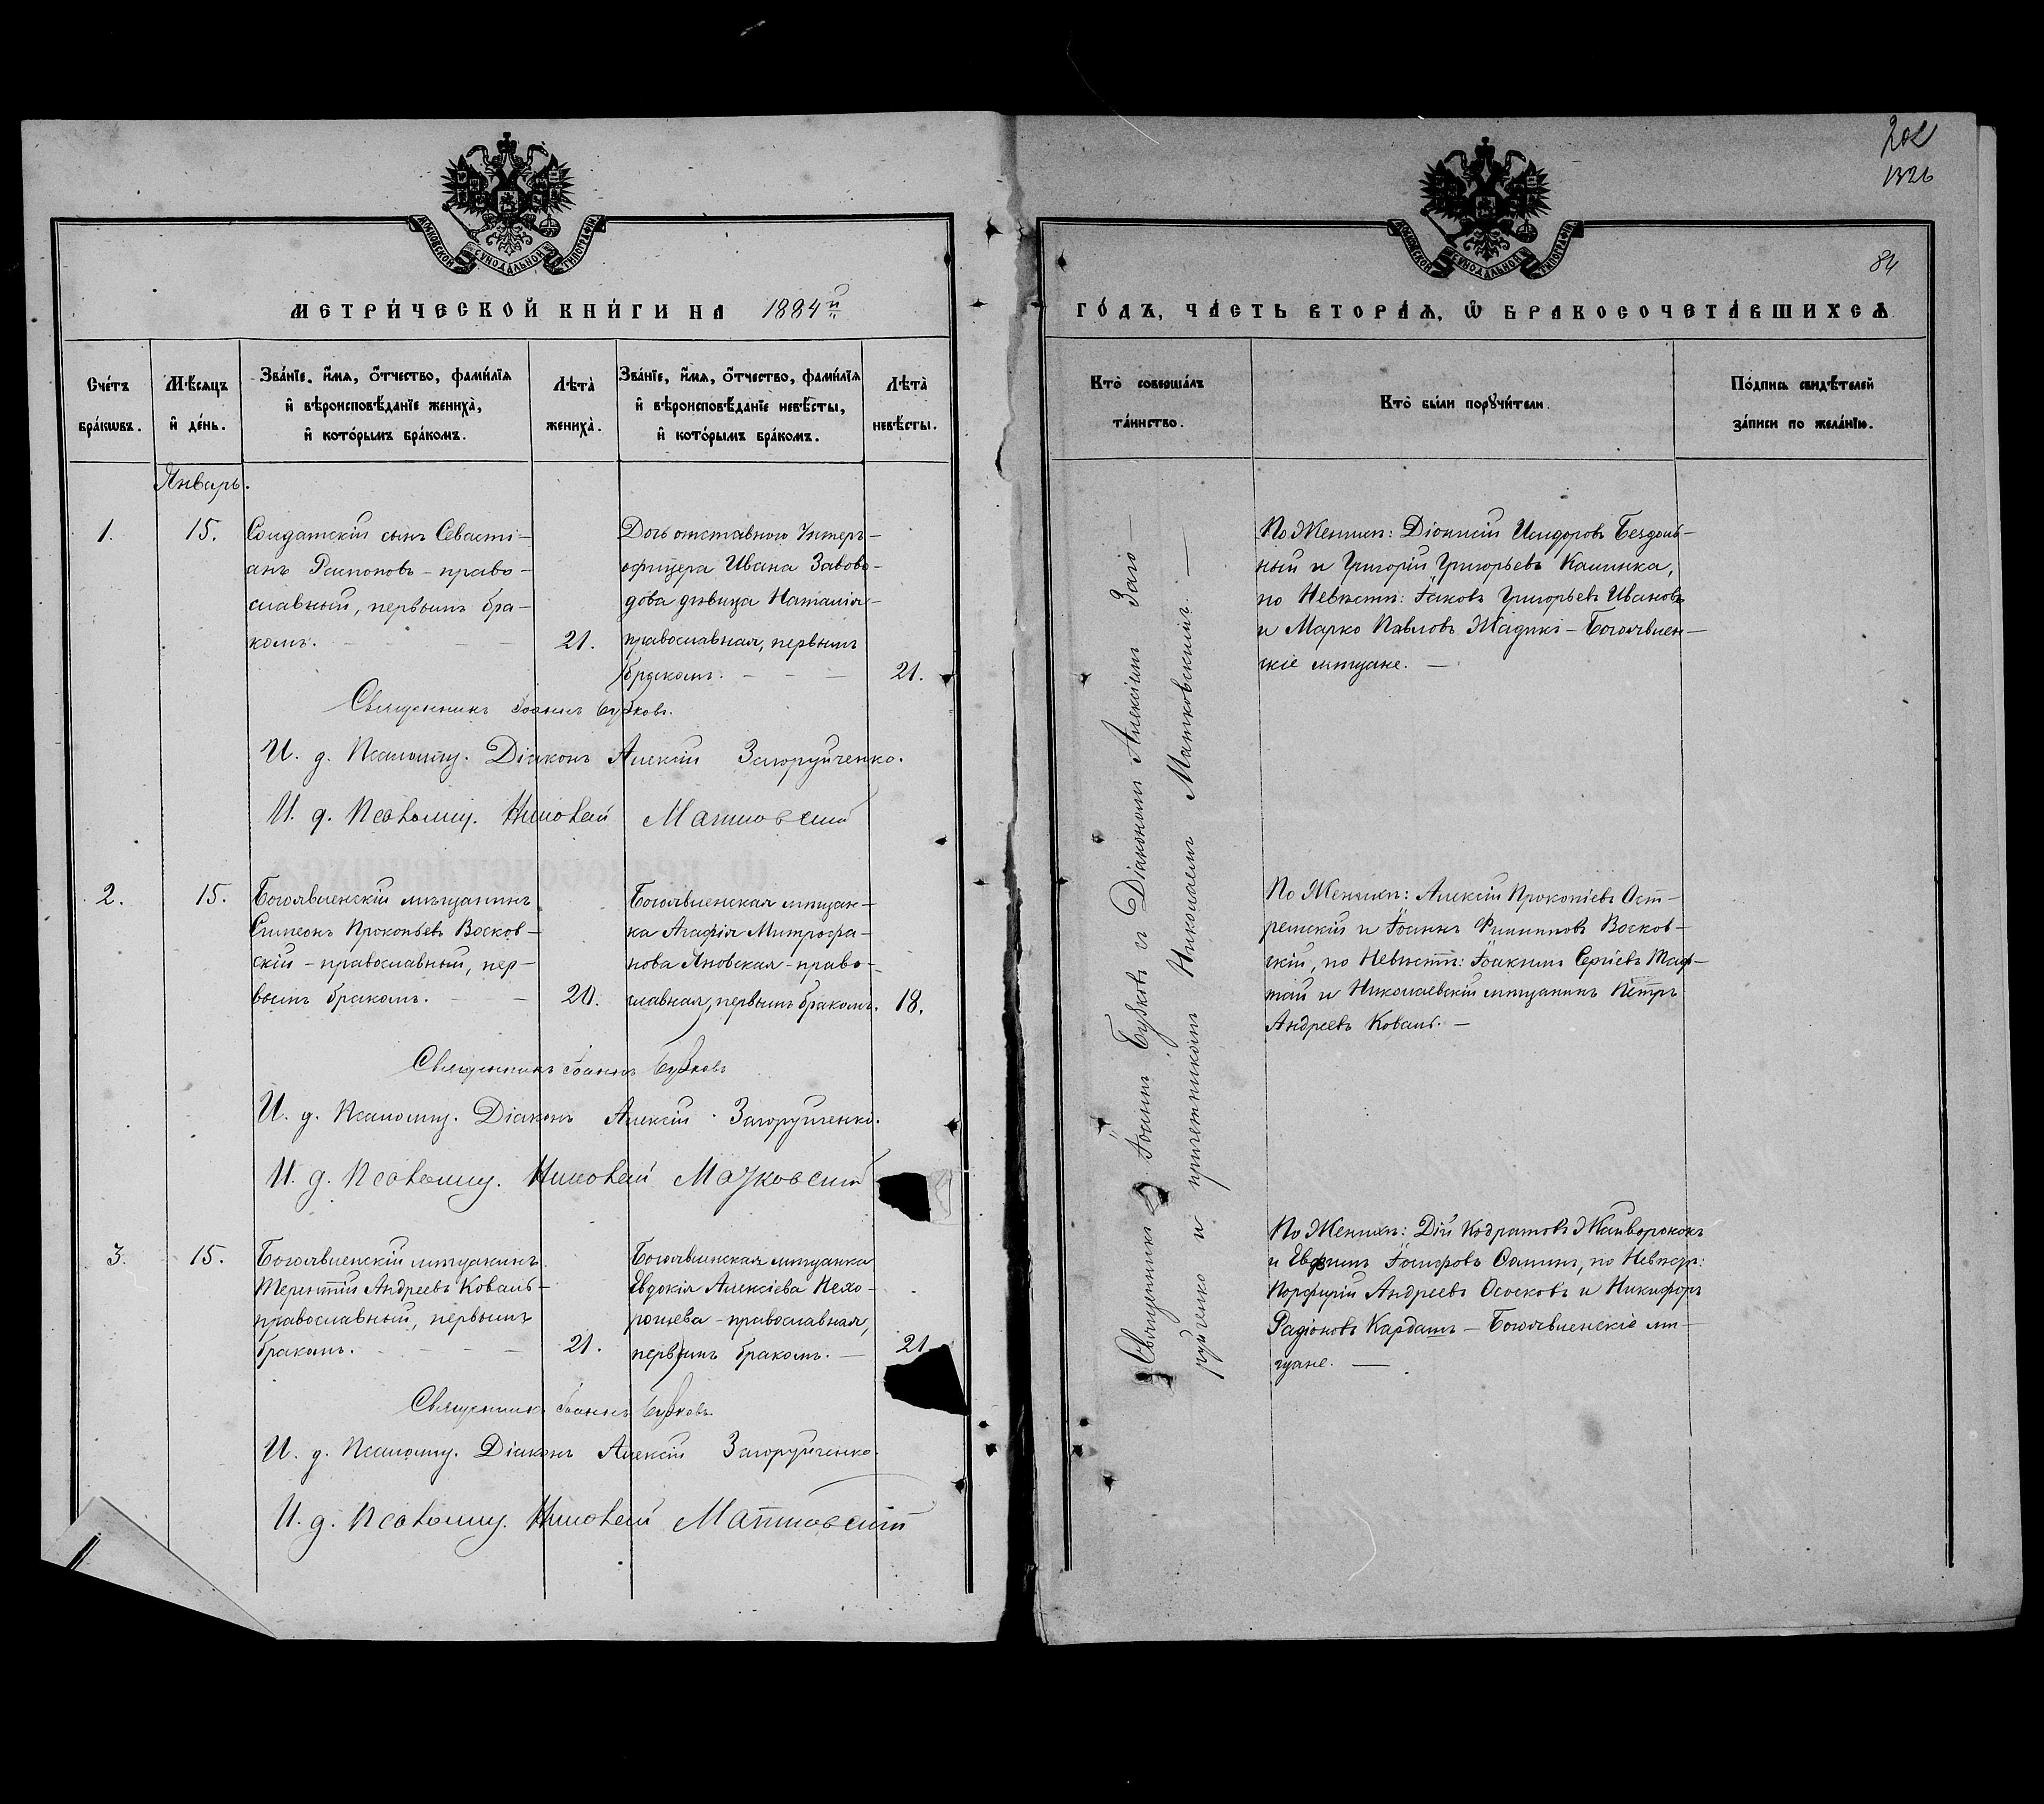 МОСКОВСКОЙ СѴНОДАЛЬНОЙ ТИПОГРАФІИ
МЕТРИ́ЧЕСКОЙ КНИ́ГИ НА 1884й
Сче́тъ бра́кѡвъ.
Мѣ́сяцъ и҆ де́нь.
Зва́нїе, и҆́мя, ѻ҆́тчество, фами́лїя
и҆ вѣроисповѣ́данїе жениха̀,
и҆ кото́рымъ бра́комъ.
Лѣта̀ жениха̀.
Зва́нїе, и҆́мя, ѻ҆́тчество, фами́лїя
и҆ вѣроисповѣ́данїе невѣ́сты,
и҆ кото́рымъ бра́комъ.
Лѣта̀ невѣ́сты.
Январь.
1.
15.
Солдатскій сынъ Севасті-
анъ Распоповъ - право-
славный, первымъ бра-
комъ. - - -
21.
Дочь отставного Унтеръ-
офицера Ивана Заво
дова дѣвица Наталія-
православная, первымъ
бракомъ. - - -
21.
Священникъ Іоаннъ Бубковъ.
И. д. Псаломщ. Діаконъ Алексій Загоруйченко.
И. д. Псаломщ. Николай Матковскій
2.
15.
Богоявленскій мѣщанинъ
Симеонъ Прокопьевъ Восков-
скій - православный, пер-
вымъ бракомъ. - -
20.
Богоявленская мѣщан-
ка Агафія Митрофа-
нова Яновская - право-
славная, первымъ бракомъ.
18.
Священникъ Іоаннъ Бубковъ
И. д. Псаломщ. Діаконъ Алексій Загоруйченко.
И. д. Псаломщ. Николай Матковскій
3.
15.
Богоявленскій мѣщанинъ
Терентій Андреевъ Коваль-
православный, первымъ
бракомъ. - - -
21.
Богоявленская мѣщанка
Евдокія Алексіева
православная,
первымъ бракомъ. -
21
Священникъ Іоаннъ Бубковъ.
И. д. Псаломщ. Діаконъ Алексій Загоруйченко.
И. д. Псаломщ. Николай Матковскій
202
1326
84
МОСКОВСКОЙ СѴНОДАЛЬНОЙ ТИПОГРАФІИ
ГО́ДЪ, ЧА́СТЬ ВТОРА́Ѧ, Ѽ БРАКОСОЧЕТА́ВШИХСѦ
Кто̀ соверша́лъ
та́инство.
Кто̀ бы́ли порꙋчи́тели.
По́дпись свидѣ́телей
за́писи по жела́нїю.
Священникъ Іоаннъ Бубковъ и Діакономъ Алексіемъ Заго-
руйченко и причетникомъ Николаемъ Матковскимъ. -
По Женихѣ: Діонисій Исидоровъ Бездоль-
ный и Григорій Григорьевъ Калинка,
по Невѣстѣ: Іаковъ Григорьевъ Ивановъ
и Марко Павловъ - Богоявлен-
скіе мѣщане. -
По Женихѣ: Алексій Прокопіевъ Ост-
и Іоаннъ Филипповъ Восков-
скій, по Невѣстѣ: Іоакимъ Сергіевъ
и Николаевскій мѣщанинъ Петръ
Андреевъ Коваль. -
По Женихѣ: Дій Кодратовъ Жайворонокъ
и Евфимъ по Невѣстѣ:
Порфирій Андреевъ Ососковъ и Никифоръ
Радіоновъ Кардашъ - Богоявленскіе мѣ-
щане. -